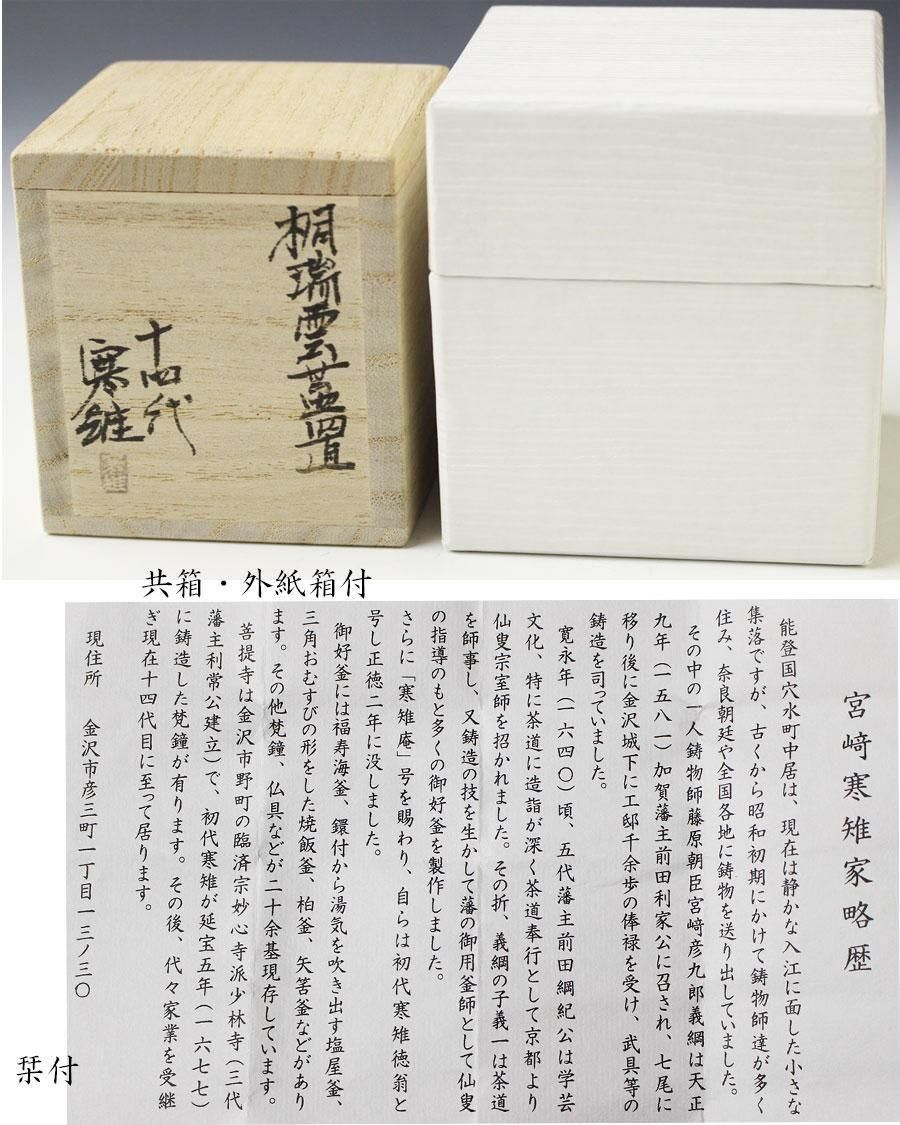 桐瑞雲蓋置
十四代
寒雉
共箱・外紙箱付
宮﨑寒雉家略歴
能登国穴水町中居は、現在は静かな入江に面した小さな
集落ですが、古くから昭和初期にかけて鋳物師達が多く
住み、奈良朝廷や全国各地に鋳物を送り出していました。
その中の一人鋳物師藤原朝臣宮﨑彦九郎義綱は天正
九年（一五八一）加賀藩主前田利家公に召され、七尾に
移り後に金沢城下に工邸千余歩の俸禄を受け、武具等の
鋳造を司っていました。
寛永年（一六四〇）頃、五代藩主前田綱紀公は学芸
文化、特に茶道に造詣が深く茶道奉行として京都より
仙叟宗室師を招かれました。その折、義綱の子義一は茶道
を師事し、又鋳造の技を生かして藩の御用釜師として仙叟
の指導のもと多くの御好釜を製作しました。
さらに「寒雉庵」号を賜わり、自らは初代寒雉徳翁と
号し正徳二年に没しました。
御好釜には福寿海釜、鐶付から湯気を吹き出す塩屋釜、
三角おむすびの形をした焼飯釜、柏釜、矢筈釜などがあり
ます。その他梵鐘、仏具などが二十余基現存しています。
菩提寺は金沢市野町の臨済宗妙心寺派少林寺（三代
藩主利常公建立）で、初代寒雉が延宝五年（一六七七）
に鋳造した梵鐘が有ります。その後、代々家業を受継
ぎ現在十四代目に至って居ります。
現住所　金沢市彦三町一丁目一三ノ三〇
栞付